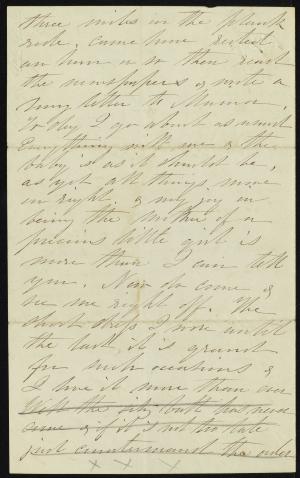 three miles in the plank
ride, came home rested
an hour or so then read
the newspapers & wrote a
long letter to Mumma.
To day I go about as usual
Everything with me & the
baby is as it should be,
as yet all things move
on right. & my joy in
being the mother of a
precious little girl is
more than I can tell
you. Now do come &
see me right off. The
short dress I wore until
the last, it is grand
for such occasions &
I love it more than ever
Well the silk has never
come & if it's not too late
just countermand the order
x x x